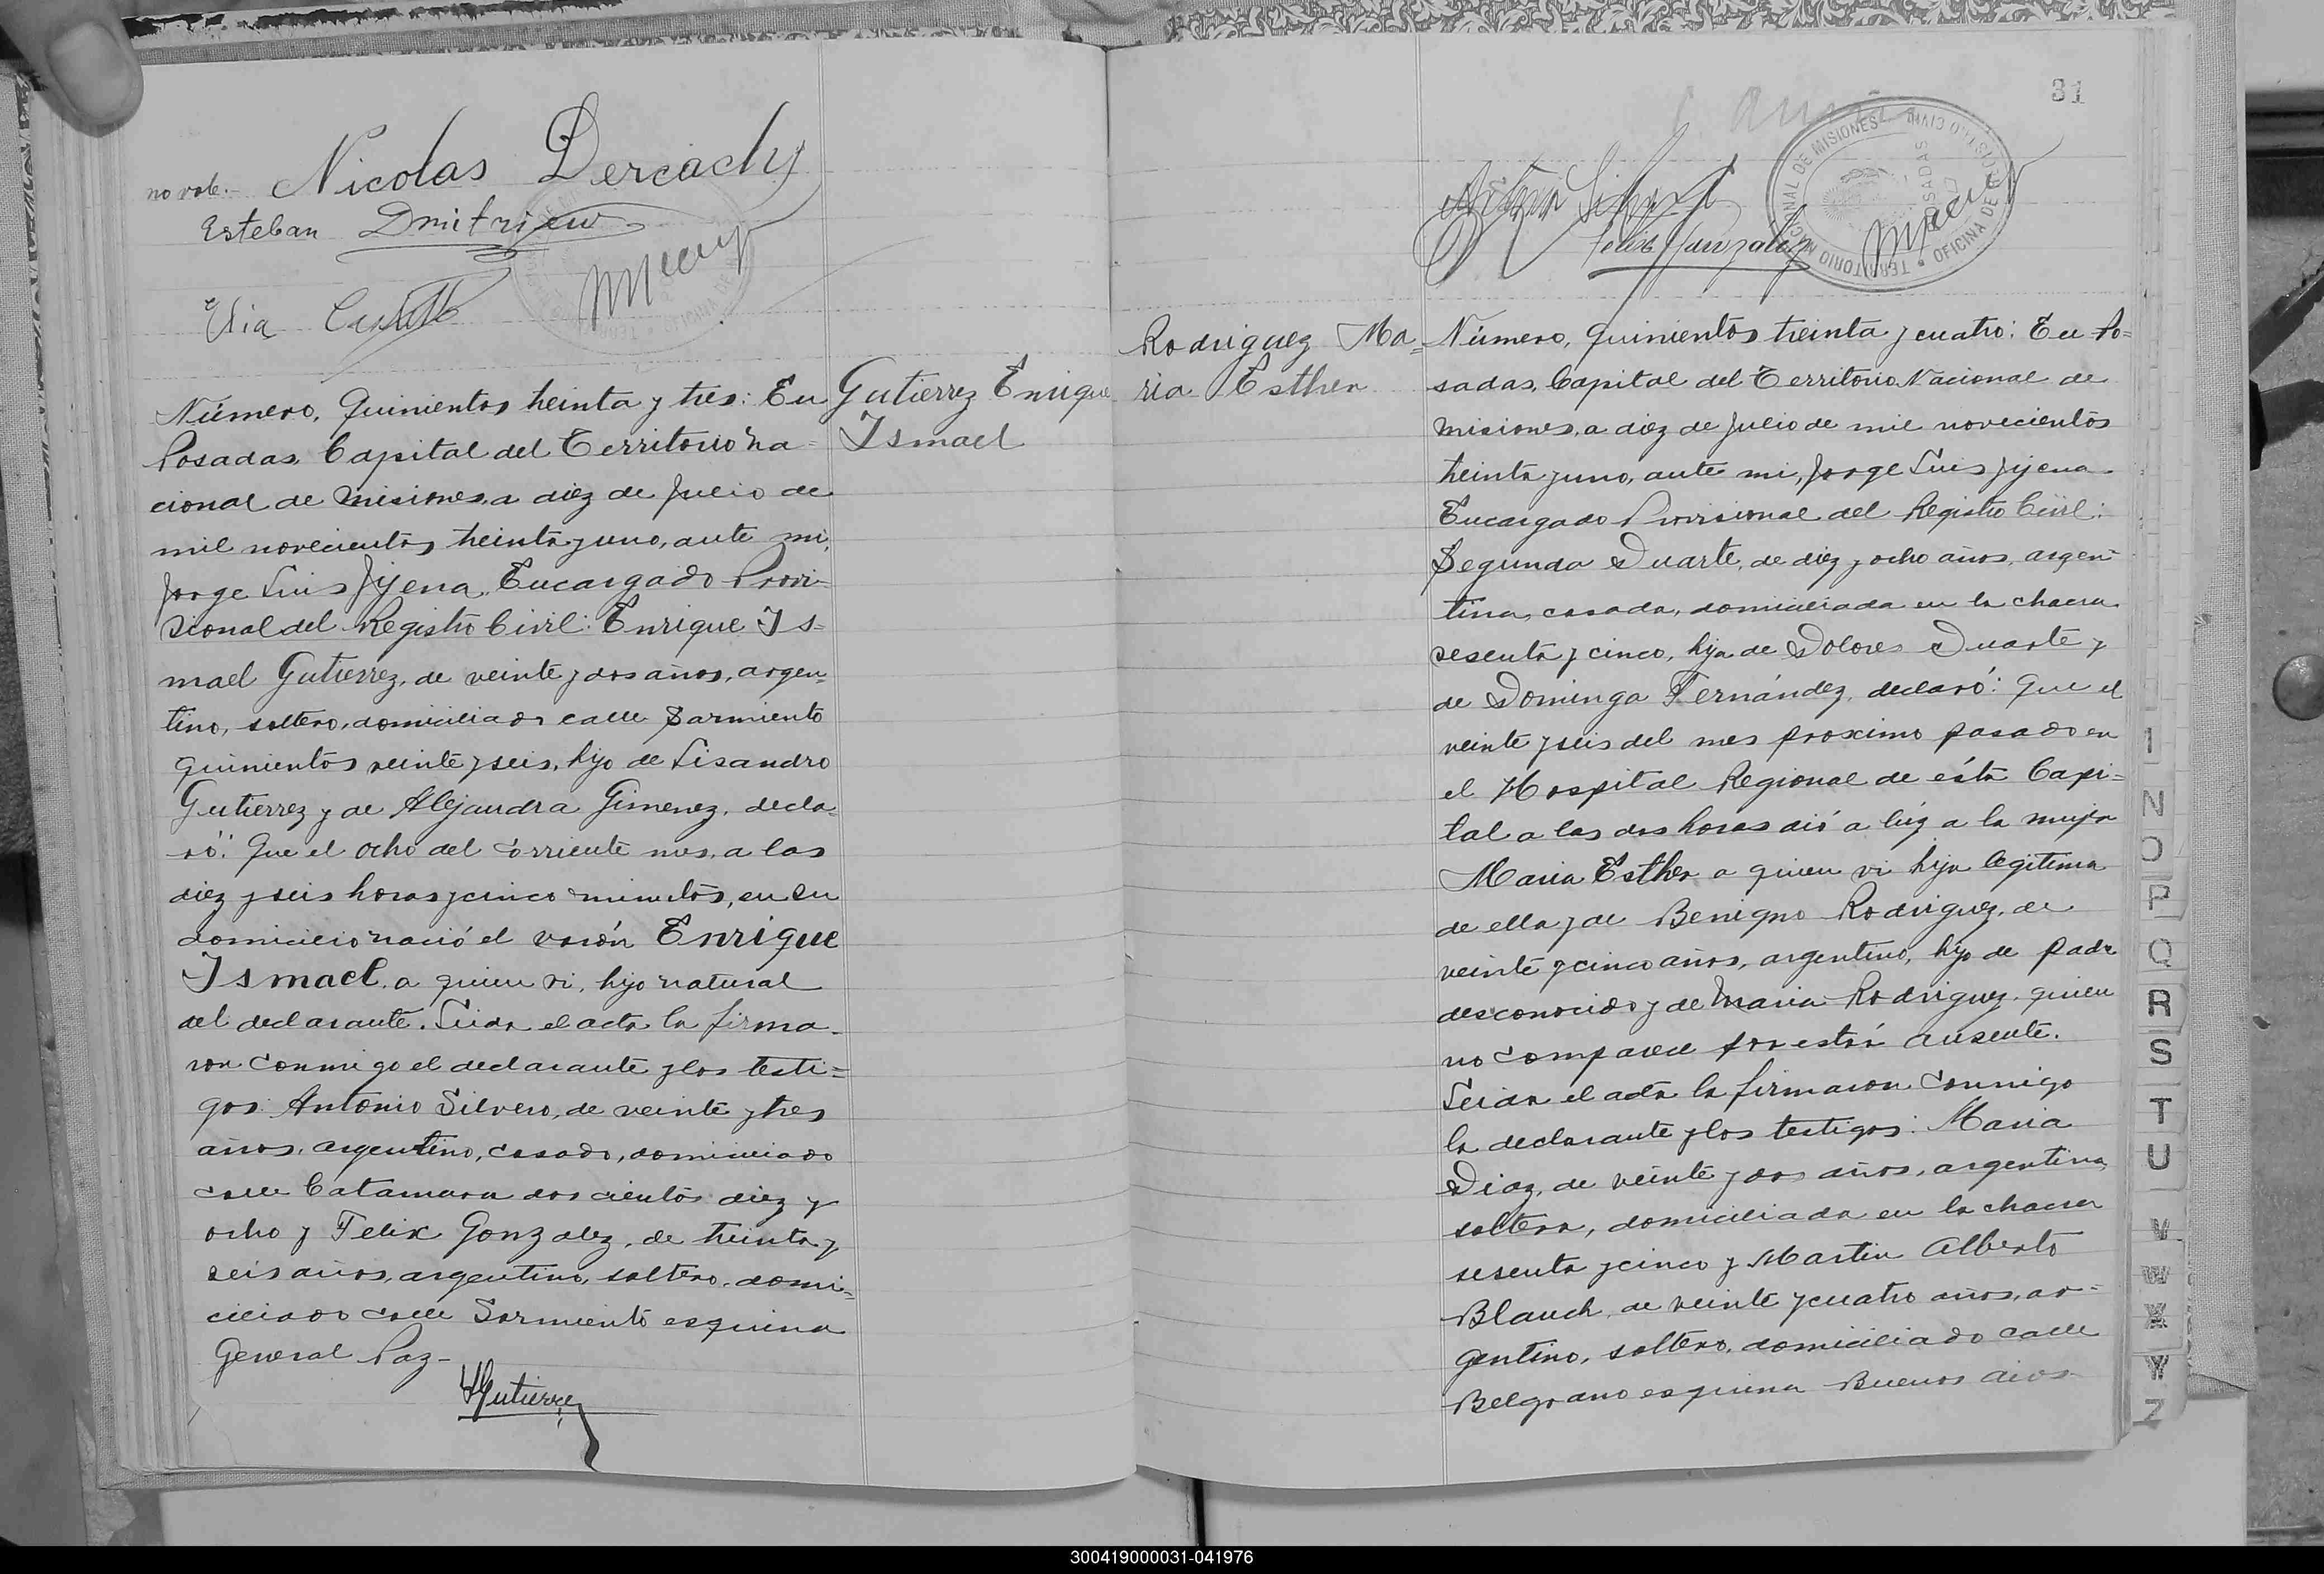 no vale.- Nicolas Dercachy
Esteban Dmitriew
Elia
Número, Quinientos treinta y tres: En
Posadas, Capital del Territorio Na=
cional de Misiones, a diez de Julio de
mil novecientos treinta y uno, ante mi,
Jorge Luis Jijena, Encargado Provi-
sional del Registro Civil: Enrique Is-
mael Gutierrez, de veinte y dos años, argen-
tino, soltero, domiciliado calle Sarmiento
quinientos veinte y seis, hijo de Lisandro
Gutierrez y de Alejandra Gimenez, decla-
ró: Que el ocho del corriente mes, a las
diez y seis horas y cinco minutos, en su
domicilio nació el varón Enrique
Ismael, a quien vi, hijo natural
del declarante. Leida el acta la firma-
ron conmigo el declarante y los testi=
gos: Antonio Silvero, de veinte y tres
años, argentino, casado, domiciliado
calle Catamarca doscientos diez y
ocho y Felix Gonzalez, de treinta y
seis años, argentino, soltero, domi-
ciliado calle Sarmiento esquina
General Paz-
Gutierrez
Gutierrez Enrique
Ismael
31
TERRITORIO NACIONAL DE MISIONES
OFICINA DE REGISTRO CIVIL
POSADAS
Felix Gonzalez
Rodriguez Ma=
ria Esther
Número, Quinientos treinta y cuatro: En Po=
sadas, Capital del Territorio Nacional de
Misiones, a diez de Julio de mil novecientos
treinta y uno, ante mi, Jorge Luis Jijena
Encargado Provisional del Registro Civil:
Segunda Duarte, de diez y ocho años, argen-
tina, casada, domiciliada en la chacra
sesenta y cinco, hija de Dolores Duarte y
de Dominga Fernández, declaró: Que el
veinte y seis del mes proximo pasado en
el Hospital Regional de ésta Capi=
tal a las dos horas dió a lúz a la mujer
Maria Esther a quien vi hija legitima
de ella y de Benigno Rodriguez, de
veinte y cinco años, argentino, hijo de padre
desconocido y de Maria Rodriguez, quien
no comparece por estár ausente.
Leida el acta la firmaron conmigo
la declarante y los testigos: Maria
Diaz, de veinte y dos años, argentina,
soltera, domiciliada en la chacra
sesenta y cinco y Martin Alberto
Blauch, de veinte y cuatro años, ar-
gentino, soltero, domiciliado calle
Belgrano esquina Buenos Aires-
I
N
O
P
Q
R
S
T
U
V
W
X
Y
Z
300419000031-041976